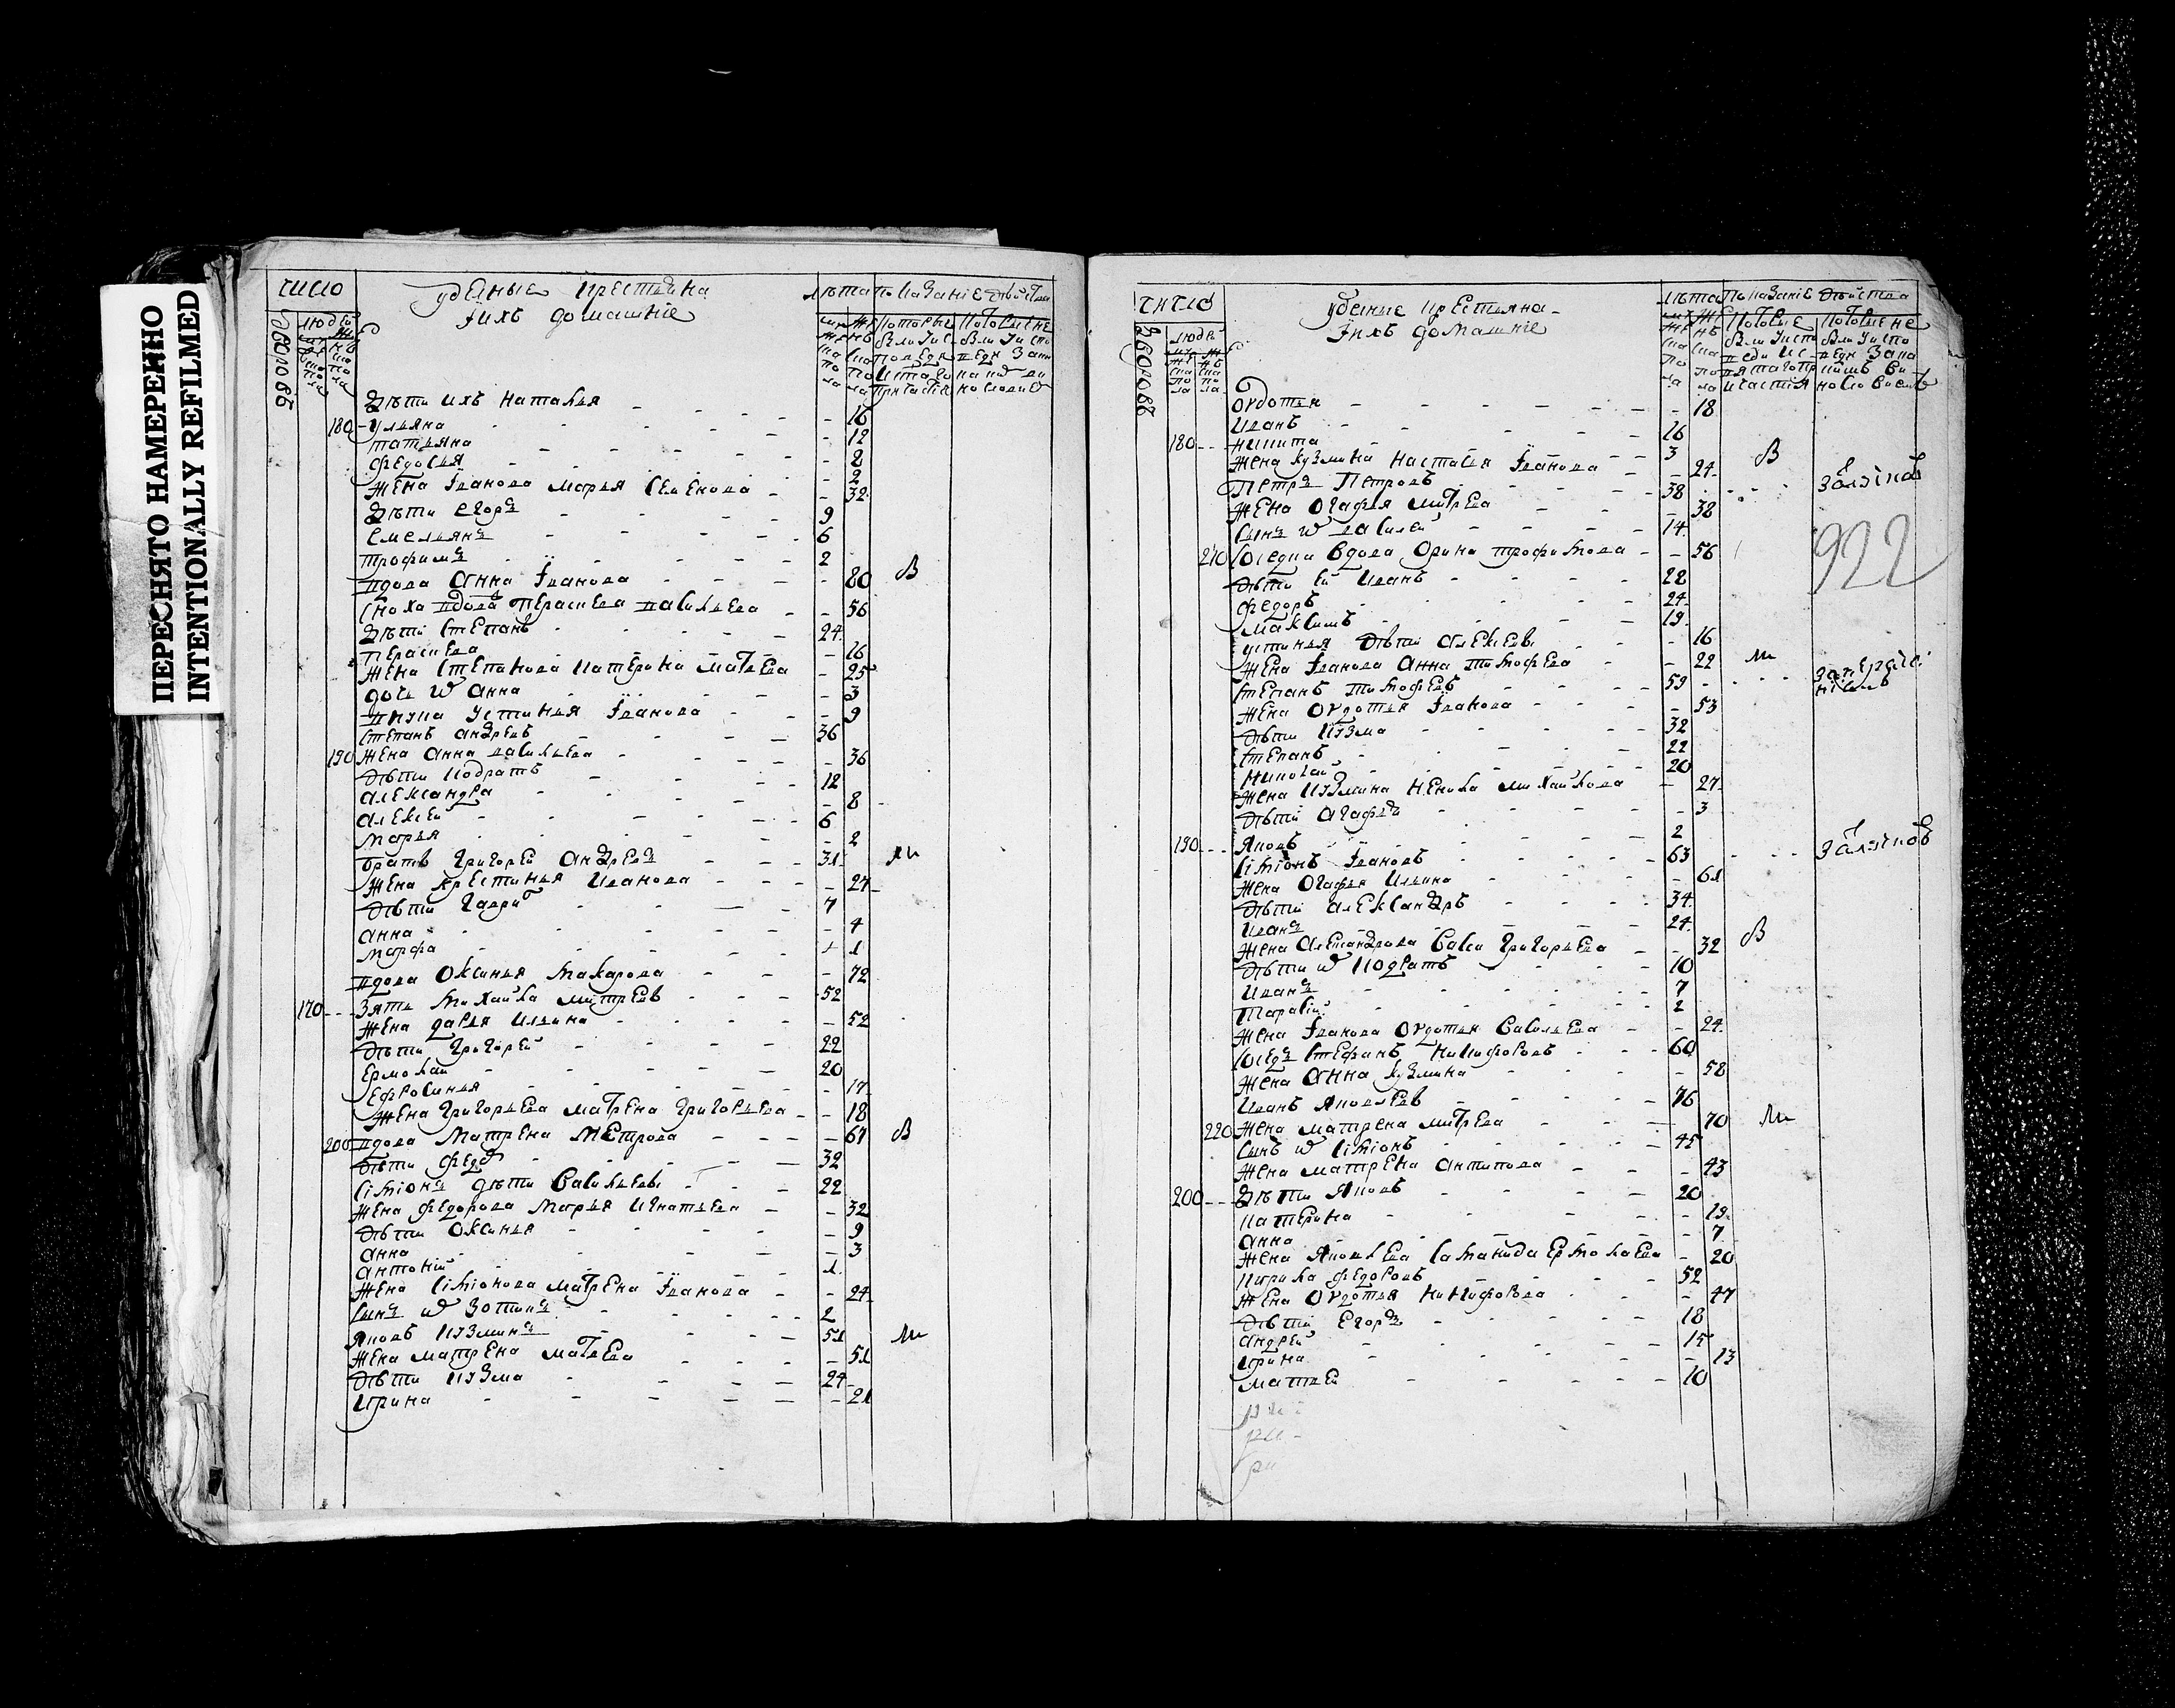 ПЕРЕСНЯТО НАМЕРЕННО
INTENTIONALLY REFILMED
число
удельные крестьяна
Їихъ домашнїе
лѣта показанїе дѣйства
дворовъ
людей
Дѣти ихъ Наталья - 16
180 Ульяна - 12
татьяна - 8
Федосья - 2
Жена Їванова Марья Семенова - 32
Дѣти Егоръ - 9
Емельянъ - 6
Трофимъ - 2
вдова Анна Їванова - 80 В
Сноха вдова Пераскева Васильева - 56
Дѣти Степанъ - 24
Пераскева - 16
Жена Степанова Катерина Матвева - 25
дочь ѿ Анна - 3
внука Устинья Їванова - 9
Степанъ Андревъ 36
190 Жена Анна Васильева - 36
Дѣти Кодратъ 12
Александра - 8
Алексей - 6
Марья - 2
братъ Григорей Андревъ - 31 М
Жена Крестинья Иванова - 27
Дѣти Гаври - 7
Анна - 4
Марфа - 1
вдова Оксинья Макарова - 72
170 Зять Михайла Митревъ - 52
Жена Дарья Ильина - 52
Дѣти Григорей - 22
Ермолай - 20
Ефросинья - 17
Жена Григорьева Матрена Григорьева - 18
200 вдова Матрена Петрова - 67 В
Дѣти Федо - 32
Симїонъ дѣти Савильевы - 22
Жена Федорова Марья Игнатьева - 32
Дѣти Оксинья - 9
Анна - 3
Антонїй - 1
Жена Симїонова Матрена Їванова - 24
Сынъ ѿ Зотикъ - 2
Яковъ Кузминъ - 51 М
Жена Матрена Матвева - 51
Дѣти Кузма - 24
Ирина - 21
число
удельные крестьяна
Їихъ домашнїе
лѣта показанїе дѣйства
дворовъ
людей
Овдотья - 18
Иванъ - 16
180 Никита - 3
Жена Кузмина Настасья Їванова - 24 В
Петръ Петровъ - 38
Жена Огафья Митрева - 38
Сынъ ѿ Василей - 14
922
210 Соледка вдова Орина Трофимова - 56
Дѣти ей Иванъ - 22
Федоръ - 24
Максимъ - 19
Устинья дѣти Алексевы - 16
Жена Їванова Анна Тимофева - 22 М
Степанъ Тимофевъ - 59
Жена Овдотья Їванова - 53
Дѣти Кузма - 32
Степанъ - 22
Николай - 20
Жена Кузмина Ненила Михайлова - 27
Дѣти Агафья - 3
190 Яковъ - 2
Симїонъ Ївановъ - 63
Жена Огафья Ильина - 61
Дѣти Александръ - 34
Иванъ - 24
Жена Александрова Савса Григорьева - 32 В
Дѣти ѿ Кодратъ - 10
Иванъ - 7
Тарасїй - 2
Жена Їванова Овдотья Савельева - 24
Стефанъ Никифоровъ - 60
Жена Анна Кузмина - 58
Иванъ Яковлевъ - 76
220 Жена Матрена Митрева - 70 М
Сынъ ѿ Симїонъ - 45
Жена Матрена Антипова - 43
200 Дѣти Яковъ - 20
Катерина - 19
Анна - 7
Жена Яковлева Саманида Ермолаева - 20
Кирила Федоровъ - 52
Жена Овдотья Никифорова - 47
Дѣти Егоръ - 18
Андрей - 15
Ирина - 13
Матвей - 10